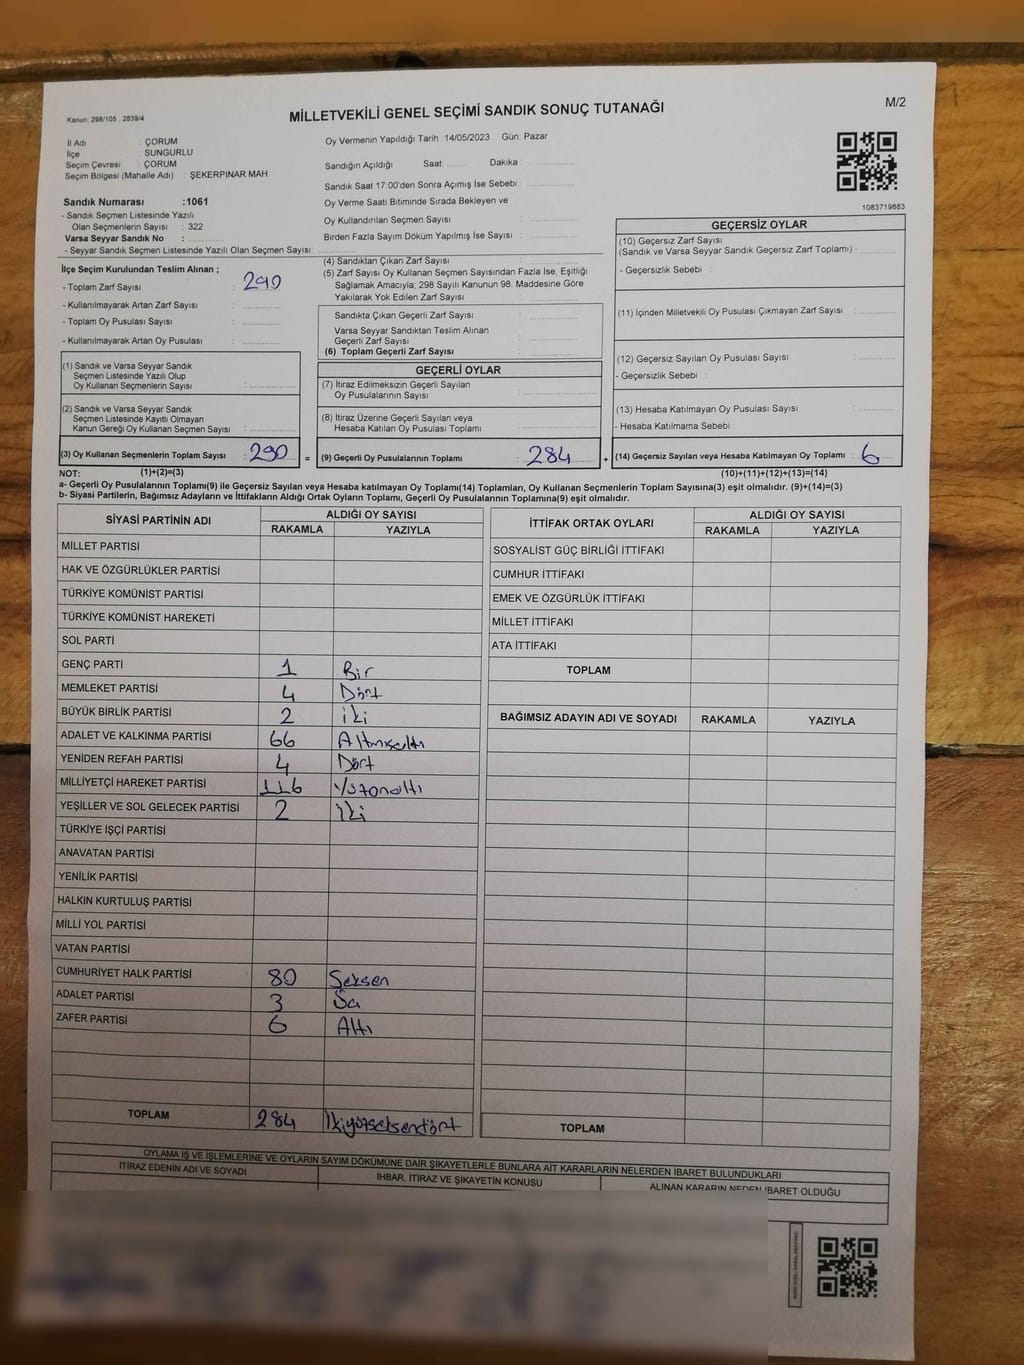 M/2
Kanun: 298/105 , 2839/4
MİLLETVEKİLİ GENEL SEÇİMİ SANDIK SONUÇ TUTANAĞI
İl Adı : ÇORUM
İlçe : SUNGURLU
Seçim Çevresi : ÇORUM
Seçim Bölgesi (Mahalle Adı) : ŞEKERPINAR MAH
Oy Vermenin Yapıldığı Tarih : 14/05/2023 Gün: Pazar
Sandığın Açıldığı Saat: Dakika :
Sandık Saat 17:00'den Sonra Açımış İse Sebebi :
Oy Verme Saati Bitiminde Sırada Bekleyen ve
Oy Kullandırılan Seçmen Sayısı :
Birden Fazla Sayım Döküm Yapılmış İse Sayısı :
1083719883
Sandık Numarası :1061
- Sandık Seçmen Listesinde Yazılı
Olan Seçmenlerin Sayısı : 322
Varsa Seyyar Sandık No :
- Seyyar Sandık Seçmen Listesinde Yazılı Olan Seçmen Sayısı:
İlçe Seçim Kurulundan Teslim Alınan ;
- Toplam Zarf Sayısı : 290
- Kullanılmayarak Artan Zarf Sayısı :
- Toplam Oy Pusulası Sayısı :
- Kullanılmayarak Artan Oy Pusulası :
(1) Sandık ve Varsa Seyyar Sandık
Seçmen Listesinde Yazılı Olup
Oy Kullanan Seçmenlerin Sayısı :
(2) Sandık ve Varsa Seyyar Sandık
Seçmen Listesinde Kayıtlı Olmayan
Kanun Gereği Oy Kullanan Seçmen Sayısı :
(3) Oy Kullanan Seçmenlerin Toplam Sayısı : 290
(4) Sandıktan Çıkan Zarf Sayısı :
(5) Zarf Sayısı Oy Kullanan Seçmen Sayısından Fazla İse, Eşitliği
Sağlamak Amacıyla; 298 Sayılı Kanunun 98. Maddesine Göre
Yakılarak Yok Edilen Zarf Sayısı :
Sandıkta Çıkan Geçerli Zarf Sayısı :
Varsa Seyyar Sandıktan Teslim Alınan
Geçerli Zarf Sayısı :
(6) Toplam Geçerli Zarf Sayısı :
GEÇERLİ OYLAR
(7) İtiraz Edilmeksizin Geçerli Sayılan
Oy Pusulalarının Sayısı :
(8) İtiraz Üzerine Geçerli Sayılan veya
Hesaba Katılan Oy Pusulası Toplamı :
= (9) Geçerli Oy Pusulalarının Toplamı : 284
GEÇERSİZ OYLAR
(10) Geçersiz Zarf Sayısı
(Sandık ve Varsa Seyyar Sandık Geçersiz Zarf Toplamı) :
- Geçersizlik Sebebi :
(11) İçinden Milletvekili Oy Pusulası Çıkmayan Zarf Sayısı :
(12) Geçersiz Sayılan Oy Pusulası Sayısı :
- Geçersizlik Sebebi :
(13) Hesaba Katılmayan Oy Pusulası Sayısı :
- Hesaba Katılmama Sebebi :
+ (14) Geçersiz Sayılan veya Hesaba Katılmayan Oy Toplamı : 6
NOT: (1)+(2)=(3) (10)+(11)+(12)+(13)=(14)
a- Geçerli Oy Pusulalarının Toplamı(9) ile Geçersiz Sayılan veya Hesaba katılmayan Oy Toplamı(14) Toplamları, Oy Kullanan Seçmenlerin Toplam Sayısına(3) eşit olmalıdır. (9)+(14)=(3)
b- Siyasi Partilerin, Bağımsız Adayların ve İttifakların Aldığı Ortak Oyların Toplamı, Geçerli Oy Pusulalarının Toplamına(9) eşit olmalıdır.
SİYASİ PARTİNİN ADI ALDIĞI OY SAYISI
RAKAMLA YAZIYLA
MİLLET PARTİSİ
HAK VE ÖZGÜRLÜKLER PARTİSİ
TÜRKİYE KOMÜNİST PARTİSİ
TÜRKİYE KOMÜNİST HAREKETİ
SOL PARTİ
GENÇ PARTİ 1 Bir
MEMLEKET PARTİSİ 4 Dört
BÜYÜK BİRLİK PARTİSİ 2 iki
ADALET VE KALKINMA PARTİSİ 66 Altmışaltı
YENİDEN REFAH PARTİSİ 4 Dört
MİLLİYETÇİ HAREKET PARTİSİ 116 Yüzonaltı
YEŞİLLER VE SOL GELECEK PARTİSİ 2 İki
TÜRKİYE İŞÇİ PARTİSİ
ANAVATAN PARTİSİ
YENİLİK PARTİSİ
HALKIN KURTULUŞ PARTİSİ
MİLLİ YOL PARTİSİ
VATAN PARTİSİ
CUMHURİYET HALK PARTİSİ 80 Seksen
ADALET PARTİSİ 3
ZAFER PARTİSİ 6 Altı
TOPLAM 284 İkiyüzseksendört
İTTİFAK ORTAK OYLARI ALDIĞI OY SAYISI
RAKAMLA YAZIYLA
SOSYALİST GÜÇ BİRLİĞİ İTTİFAKI
CUMHUR İTTİFAKI
EMEK VE ÖZGÜRLÜK İTTİFAKI
MİLLET İTTİFAKI
ATA İTTİFAKI
TOPLAM
BAĞIMSIZ ADAYIN ADI VE SOYADI RAKAMLA YAZIYLA
TOPLAM
OYLAMA İŞ VE İŞLEMLERİNE VE OYLARIN SAYIM DÖKÜMÜNE DAİR ŞİKAYETLERLE BUNLARA AİT KARARLARIN NELERDEN İBARET BULUNDUKLARI
İTİRAZ EDENİN ADI VE SOYADI İHBAR, İTİRAZ VE ŞİKAYETİN KONUSU ALINAN KARARIN NEDEN İBARET OLDUĞU